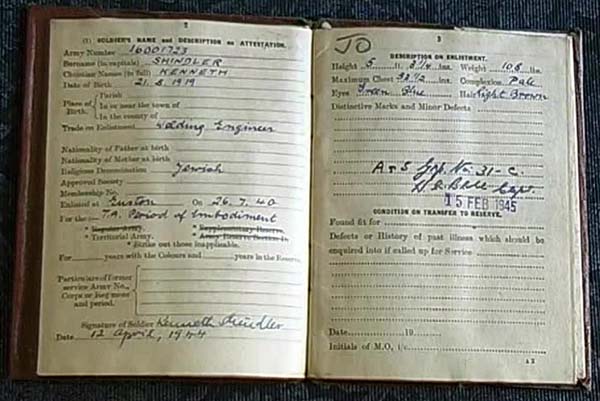 2
(1) SOLDIER'S NAME and DESCRIPTION on ATTESTATION.
Army Number 16001723
Surname (in capitals) SHINDLER
Christian Names (in full) KENNETH
Date of Birth 21.5.1919
Place of Birth.
Parish
In or near the town of
In the county of
Trade on Enlistment Welding Engineer
Nationality of Father at birth
Nationality of Mother at birth
Religious Denomination Jewish
Approved Society
Membership No.
Enlisted at Euston On 26.7.40
For the :— T.A. Period of Embodiment
* Regular Army. * Supplementary Reserve.
* Territorial Army. * Army Reserve Section D.
* Strike out those inapplicable.
For years with the Colours and years in the Reserve.
Particulars of former service Army No., Corps or Regiment and period.
Signature of Soldier Kenneth Shindler
Date 12 April, 1944
3
JO
DESCRIPTION ON ENLISTMENT.
Height 5 ft. 8 1/4 ins. Weight 108 lbs.
Maximum Chest 33 1/2 ins. Complexion Pale
Eyes Green Blue Hair Light Brown
Distinctive Marks and Minor Defects
A & S Gp. No. 31-C.
Capt.
15 FEB 1945
CONDITION ON TRANSFER TO RESERVE.
Found fit for
Defects or History of past illness which should be
enquired into if called up for Service
Date 19
Initials of M.O. i/c